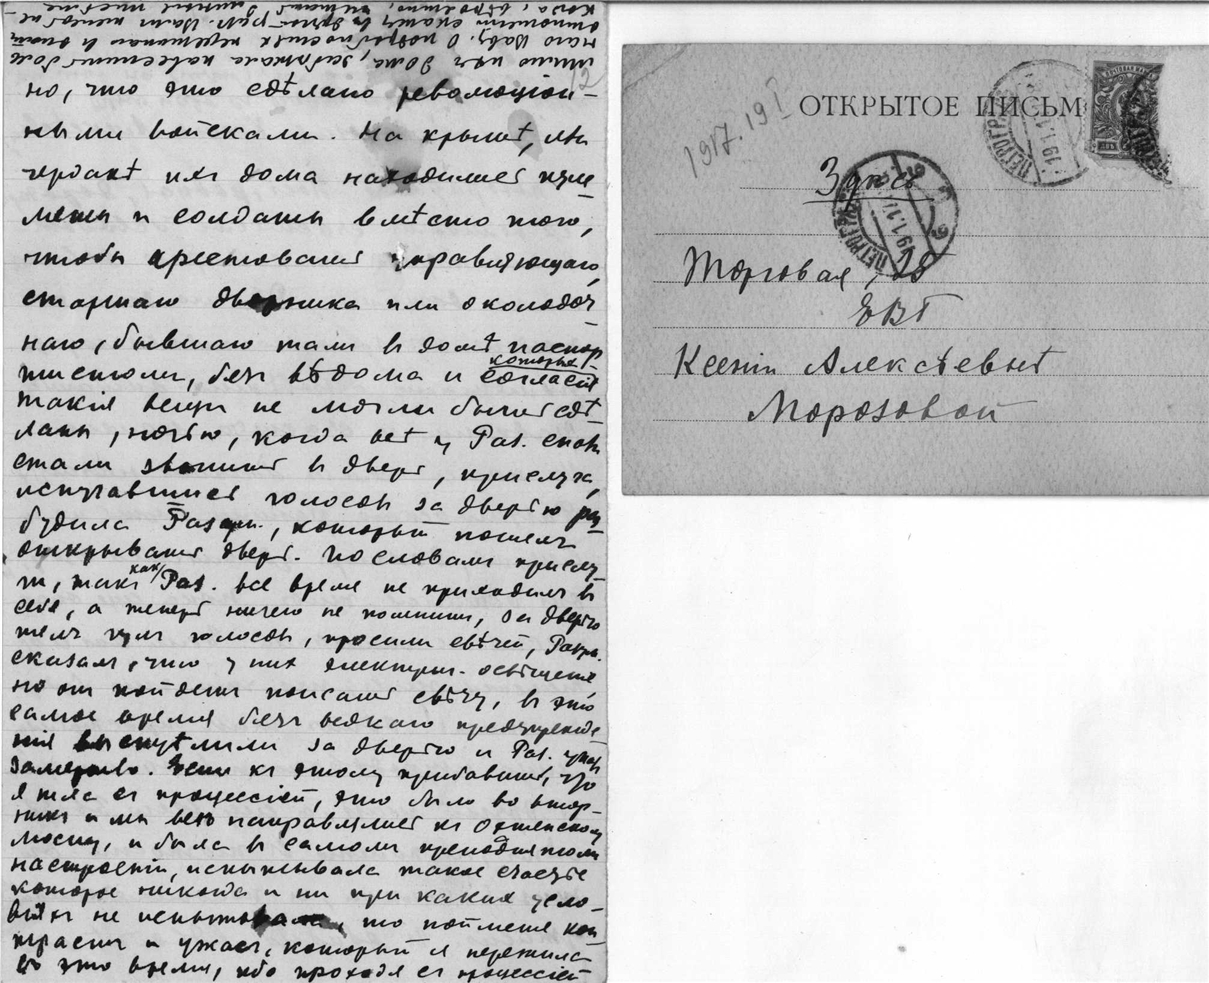 но, что это сдѣлано революціон-
ными войсками. На крышѣ, или
чердакѣ ихъ дома находились пуле
меты и солдаты вмѣсто того,
чтобы арестовать управляющаго,
старшаго дворника или околодоч
наго, бывшаго тамъ въ домѣ
безъ вѣдома и согласія которыхъ
такія вещи не могли быть сдѣ
ланы, ночью, когда всѣ у Раз. спали
стали звонить въ дверь, прислуга,
испугавшись голосовъ за дверью раз
будила Разум., который пошелъ
открывать дверь. По словамъ прислу
ги, такъ какъ Раз. все время не приходилъ въ
себя, а теперь ничего не помнитъ, за дверью
шелъ гулъ голосовъ, просили свѣчей, Разум.
сказалъ, что у нихъ электрич. освѣщеніе
но онъ пойдетъ поискать свѣчу, въ это
самое время безъ всякаго предупрежде
нія выстрѣлили за дверью и Раз. упалъ
замертво. Если къ этому прибавить, что
я шла съ процессіей, это было во втор-
никъ и мы всѣ направлялись къ Охтенскому
мосту, и была въ самомъ приподнятомъ
настроеніи, испытывала такое счастье
которое никогда и ни при какихъ усло-
віяхъ не испытывала, то поймете кон
трастъ и ужасъ, который я пережила
въ это время, ибо проходя съ процессіей
12
ОТКРЫТОЕ ПИСЬМ
1917. 19 I
Здѣсь
ПЕТРОГРАДЪ
19.1.17
Торговая, 25
ЕВБ
Ксеніи Алексѣевнѣ
Морозовой